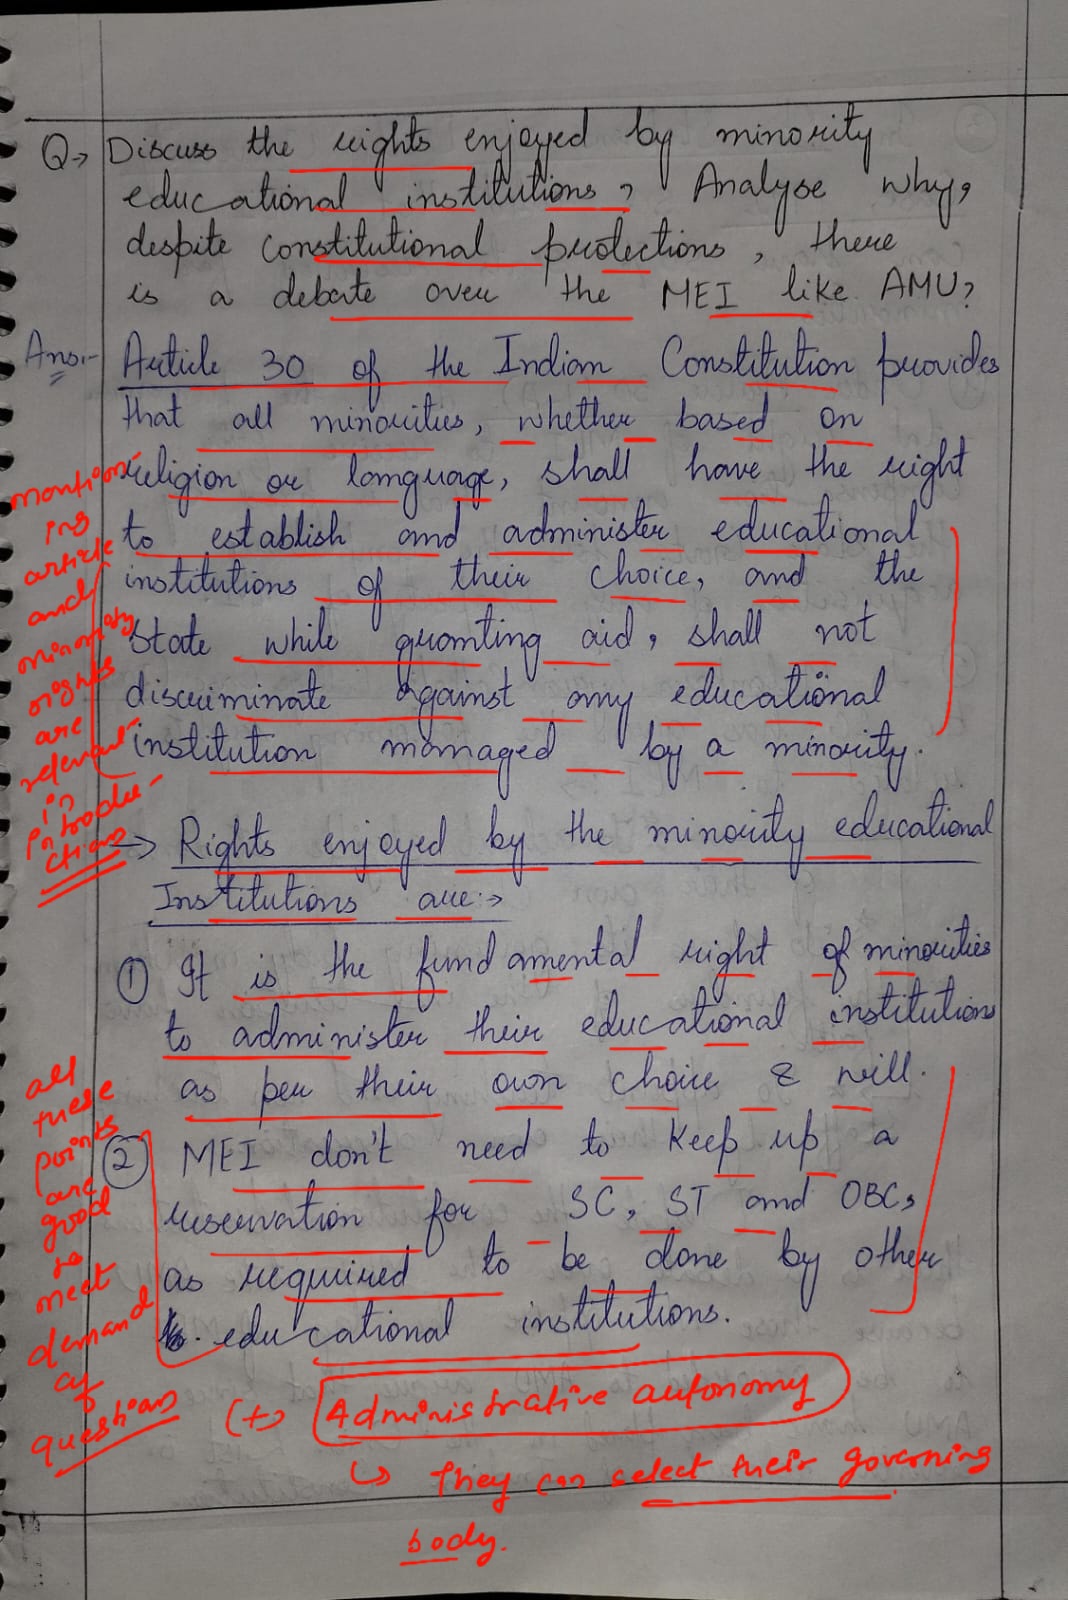 Q→ Discuss the rights enjoyed by minority
educational institutions, Analyse why,
despite constitutional protections, there
is a debate over the MEI like AMU?
Ans:- Article 30 of the Indian Constitution provides
that all minorities, whether based on
religion or language, shall have the right
to establish and administer educational
institutions of their choice, and the
state while granting aid, shall not
discriminate against any educational
institution managed by a minority.
mention-
ing
article
and
minority
rights
are
relevant
in
introdu-
ctions
→ Rights enjoyed by the minority educational
Institutions are:→
① It is the fundamental right of minorities
to administer their educational institutions
as per their own choice & will.
② MEI don't need to keep up a
reservation for SC, ST and OBC,
as required to be done by other
educational institutions.
all
these
points
are
good
to
meet
demand
of
questions
(+) Administrative autonomy
↳ They can select their governing
body.